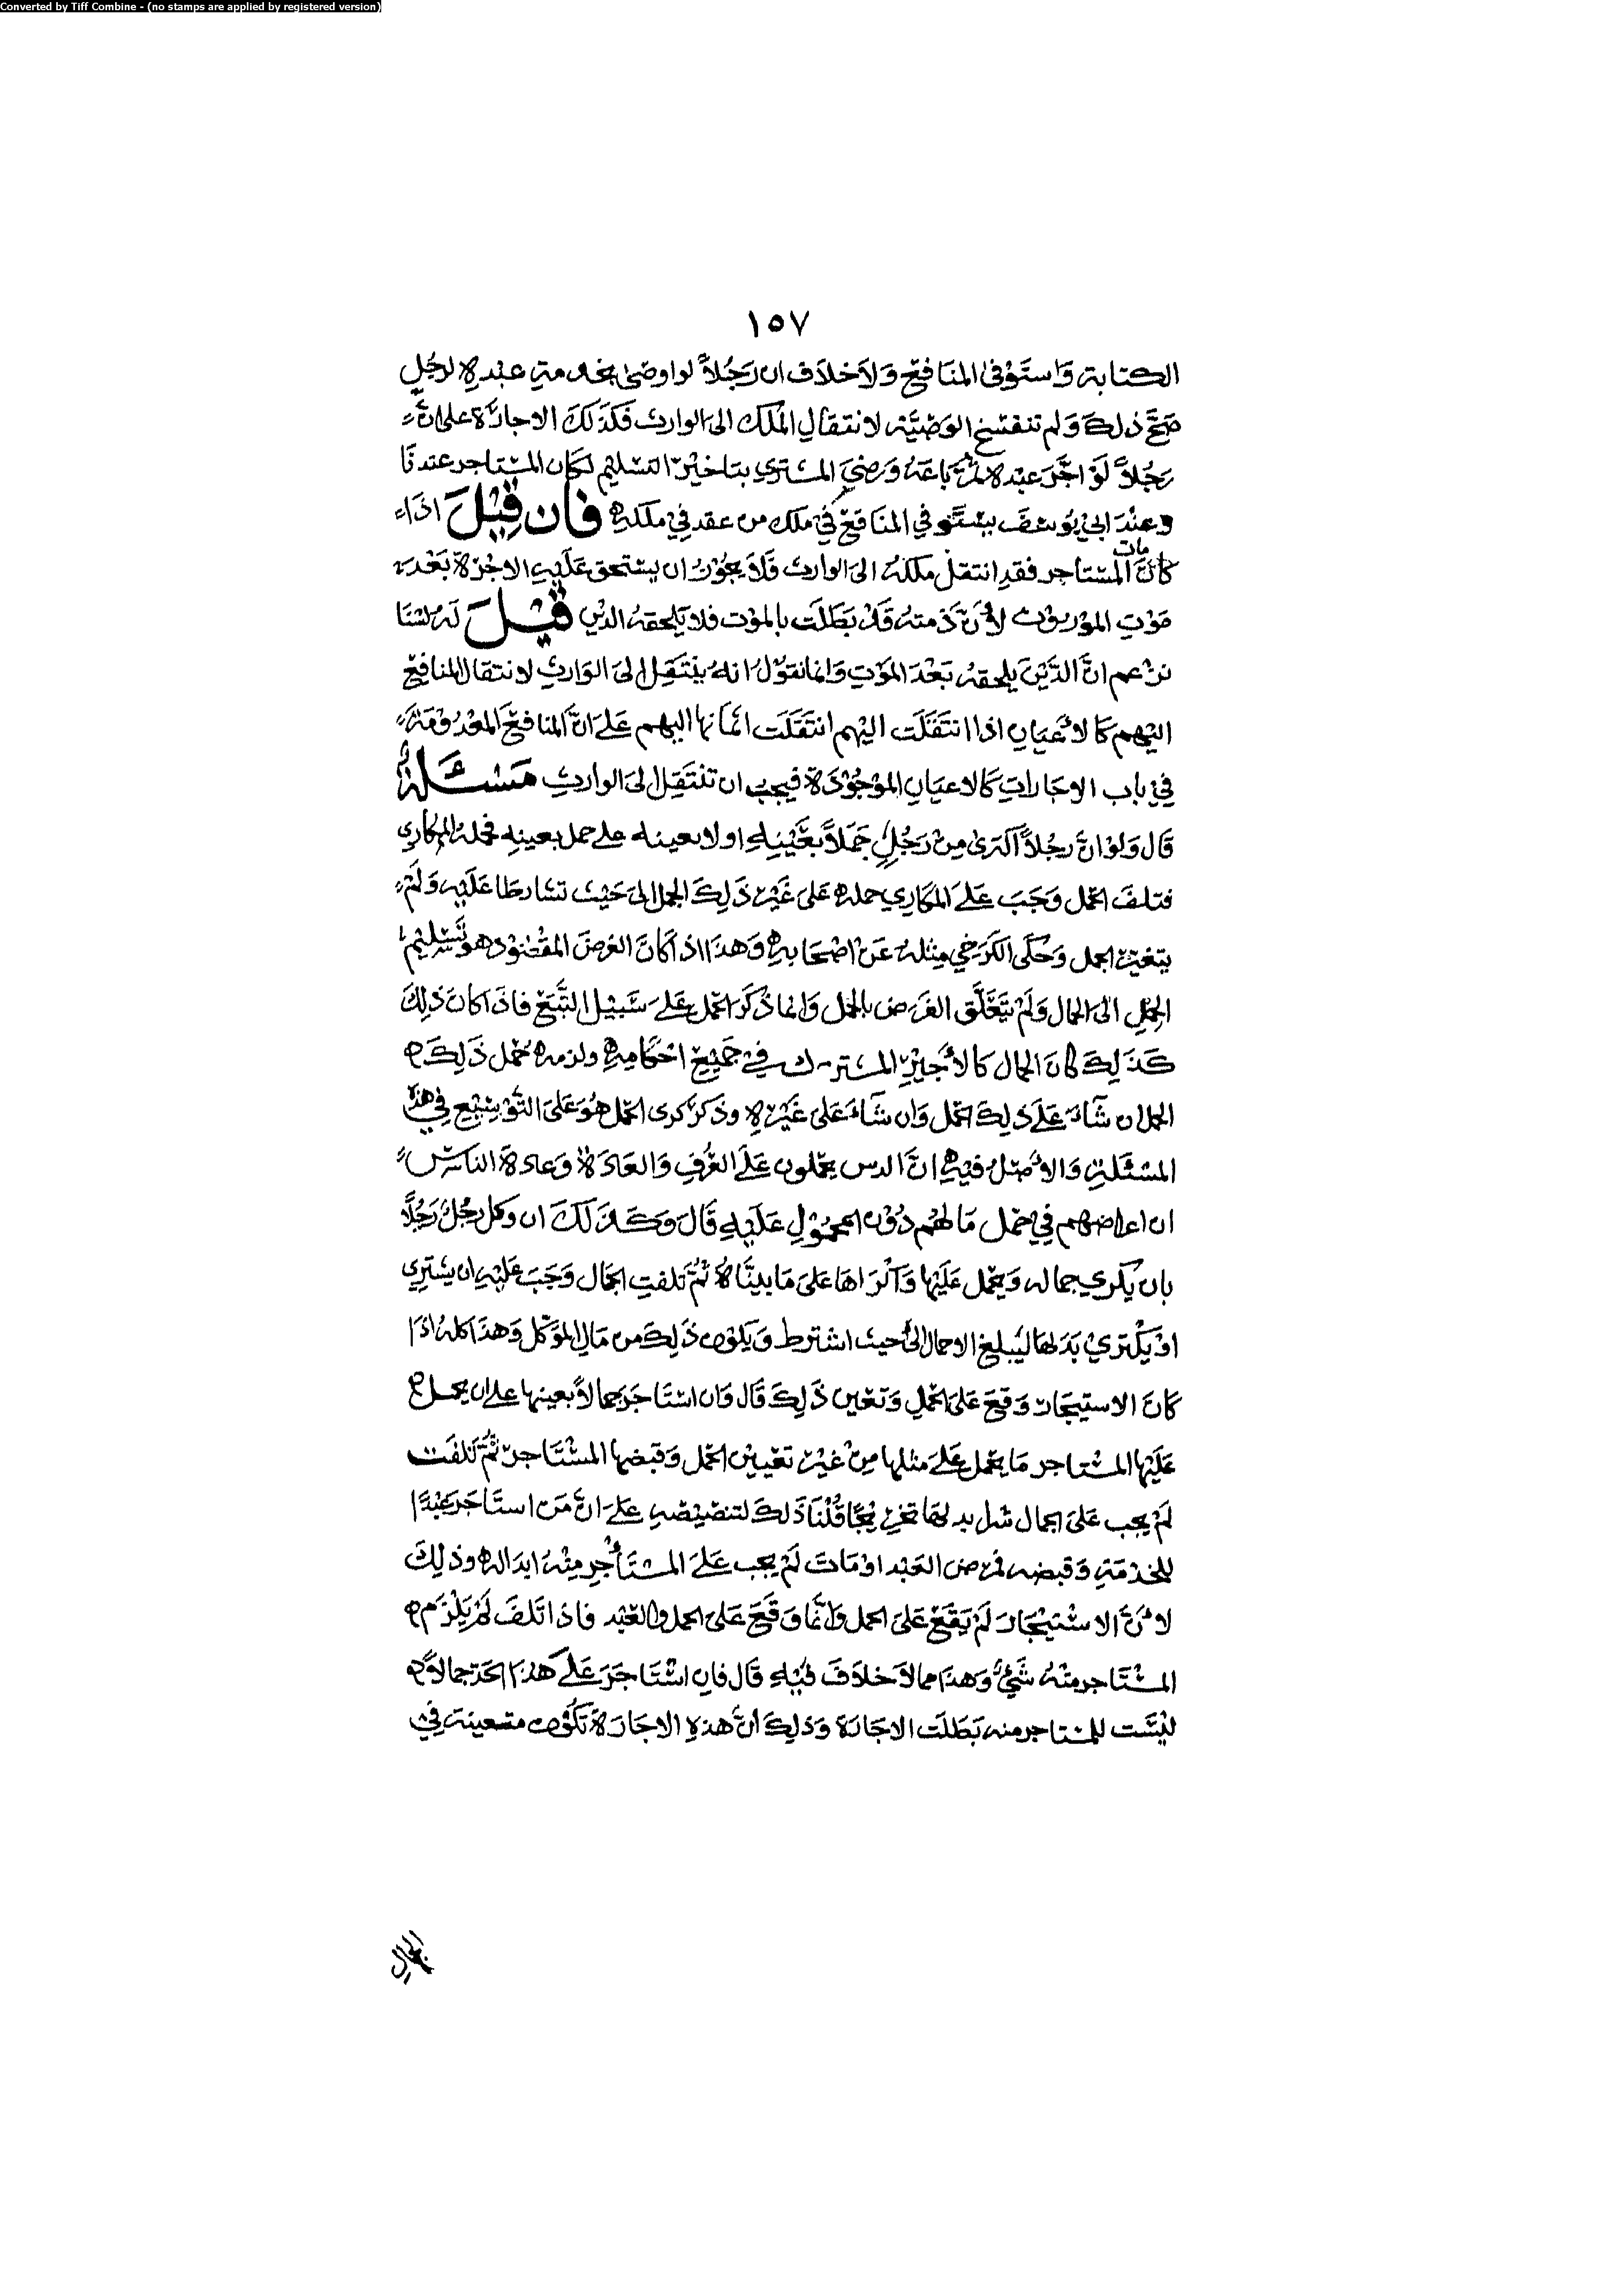 Converted by Tiff Combine - (no stamps are applied by registered version)
١٥٧
الكتابة وَاستَوْفى المنَافِعَ وَلَاخلَافَ ان رَجُلاً لو اوصَى بخدمةِ عبْدِهِ لرجُلٍ
صَحَّ ذلكَ وَلم تنفسَخ الوَصِيَّة لانتقالِ المُلك الى الوارث فكذَلكَ الاجارَة على انَّ
رَجُلاً لَوْ اجَّرَ عبْده ثمَّ بَاعَهُ وَرضيَ المشتري بتاخيْر التسْليمِ لكان المسْتاجر عندنَا
وَعِنْدَ ابى يُوسفَ يسْتَوفي المنَافِعَ في ملك من عقد في ملكه فَان قِيْلَ اذَا
كانَ مات المسْتاجر فقدِ انتقلَ ملكهُ الى الوارث فَلَا يجُوْزُ ان يستحق عَلَيهِ الاجْرَة بَعْدَ
مَوْتِ الموْروْث لأنَّ ذمتهُ قَدْ بَطَلَت بالموْت فلا يَلحقهُ الدَّيْن قِيْلَ لَهُ لسْنَا
نزْعم انَّ الدَّيْنَ يلحقهُ بَعْدَ المَوْتِ وَانما نقوْلُ انهُ ينْتَقِل الى الوَارثِ لانتقال المنافِع
اليْهم كالاَعيَانِ اذا انتَقَلَت اليْهم انتَقَلَت اثمانها اليهم عَلى انَّ المنافِعَ المعْدُوْمَة
في باب الاجَارَاتِ كالاعيَانِ الموْجُوْدَة فيجبُ ان تنتَقِل الى الوارثِ مَسْئَلَة
قَال وَلوْ انَّ رجُلاً اكترَى مِنْ رَجُلٍ جَمَلاً بعَيْنِهِ او لا بعينه على حمل بعينِهِ فحملهُ المُكاري
فتلفَ الجمل وَجَبَ عَلَى المكَارِي حمله عَلى غَيْر ذَلِكَ الجمل الى حَيْث تشارطا عَليْهِ وَلَمْ
يتعَيّن الجمل وَحُكَى الكَرخِي مِثْلهُ عَنْ اصْحَابِهِ وَهذَا اذ اكَانَ الغرضَ المقْصُوْد هوَ تَسْليْمُ
الحمْلِ الى الحمال وَلَمْ يَتَعَلَّق الغَرَض بالجمل وَانما ذُكَرَ الجمل عَلى سَبيْل التَّبَع فاذَا كانَ ذلِكَ
كَذَلِكَ كان الحمال كالأَجيْرِ المسْترك في جَمِيْع احْكامِهِ ولزمهُ حمْل ذَلِكَ
الحمل ان شَآءَ عَلى ذلِكَ الجمل وَان شَآءَ عَلى غَيْرِهِ وذكرُ كرى الجمل هُوَ عَلى التَّوْسِيْع في هذه
المسْئَلَةِ وَالاَصْل فيهِ انَّ الناس يعْملون عَلى العُرْفِ وَالعَادَة وَعادَة النَاسِ
ان اعراضهم في حمْل مَا لهُم دُوْن المحمُوْلِ عَلَيْهِ قَالَ وَكَذلكَ ان وكل رجُلٌ رَجُلاً
بان يُكري جماله وَيَحْمل عَلَيْها وَاكْرَاها عَلى مَا بيّنَّاهُ ثُمَّ تلفت الجمَال وَجَبَ عَليْهِ ان يشتري
اوْ يَكْتَري بَدَلها ليُبلغ الاحمال الى حيث اشترط وَيَكُوْن ذَلِكَ من مَالِ الموَكّل وَهذَا كلهُ اذَا
كانَ الاستيْجَار وَقَعَ عَلى الحمْلِ وَتعيّن ذَلِكَ قَالَ وَان اسْتَاجَرَ جمالاً بعينها على ان يحمل
عَلَيْها المسْتاجر مَا يحمل عَلى مثلها مِنْ غَيْر تعْيين الحمْل وَقبضها المسْتَاجر ثُمَّ تلفَت
لَمْ يجب عَلى الجمال بدلها قُلْنَا ذَلكَ لتنصيْصهِ عَلى انَّ مَن استَاجَرَ عَبْدًا
للخدْمَةِ وَقبضه فمرض العَبْد اوْ مَاتَ لَمْ يجب عَلى المسْتَأجرِ مِنْهُ ابداله وَذلِكَ
لاَنَّ الاسْتيْجَارَ لَمْ يَقَعْ عَلى الحمل وَانَّما وَقَعَ عَلى الجمل وَالعَبْد فاذا تَلفَ لَمْ يَلْزَم
المسْتَاجر مِنْهُ شَيْءٌ وَهذَا مما لاَ خلاَفَ فيْهِ قَال فَانِ اسْتَاجَرَ عَلى هٰذَا الحد جمالاً
ليْسَت للمسْتاجر منه بَطَلَت الاجَارَة وَذلِكَ انَّ هَذِهِ الاجَارَة تكُوْن متعينة في
الجمال